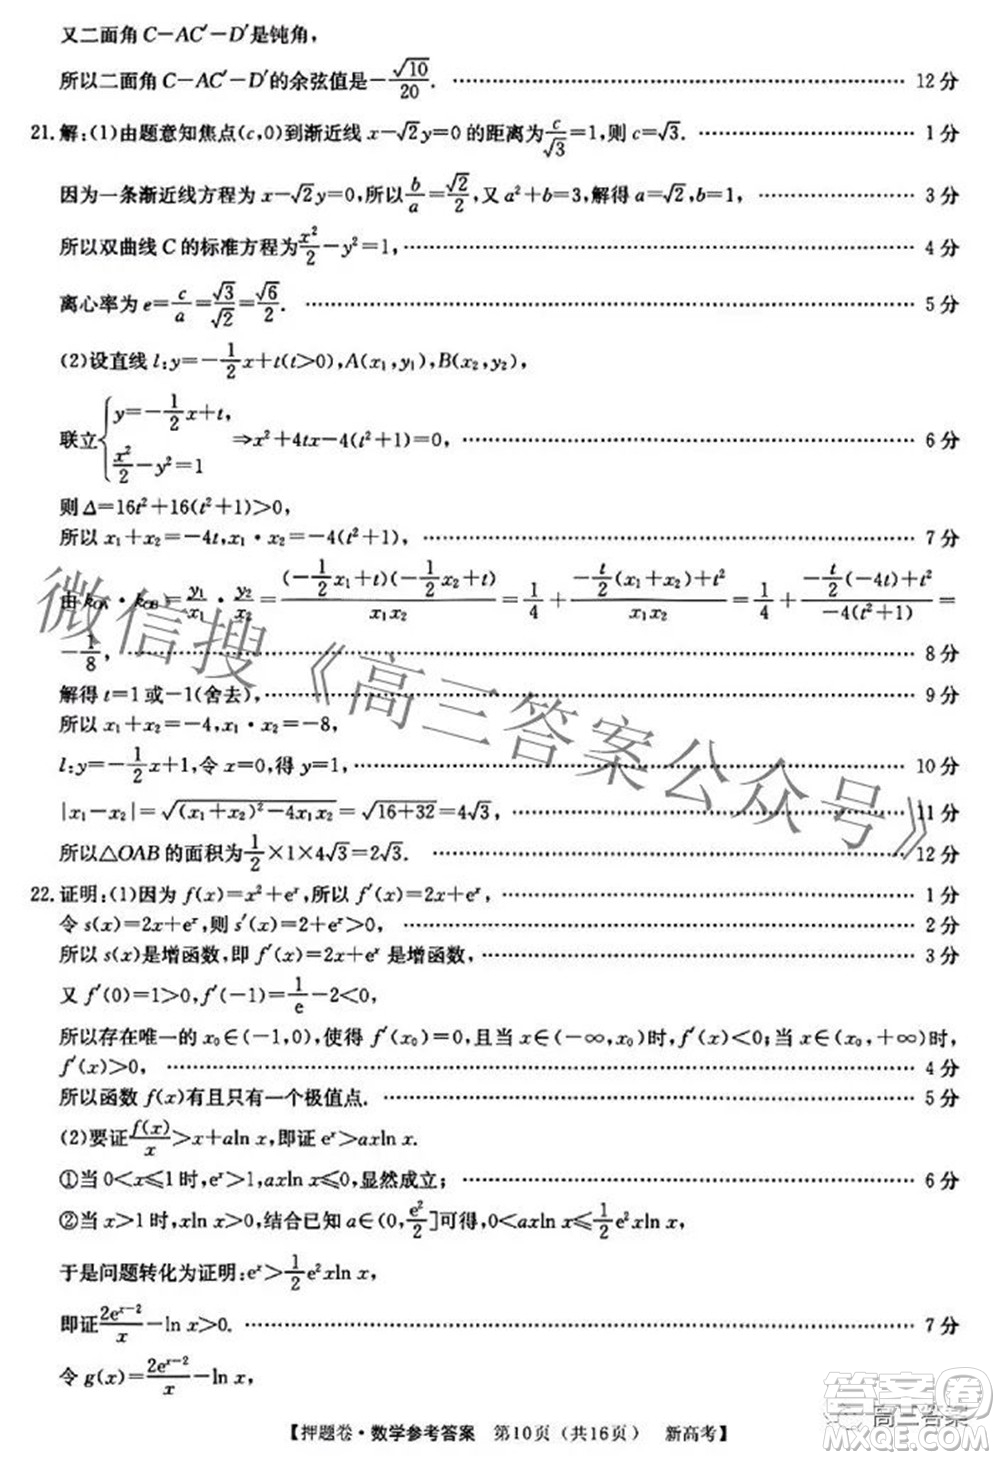 又二面角 C－AC′－D′是钝角，
所以二面角 C－AC′－D′的余弦值是－√10/20. …… 12 分
21. 解：(1)由题意知焦点(c,0)到渐近线 x－√2y=0 的距离为 c/√3=1,则 c=√3. …… 1 分
因为一条渐近线方程为 x－√2y=0,所以 b/a=√2/2,又 a²+b²=3,解得 a=√2,b=1, …… 3 分
所以双曲线 C 的标准方程为 x²/2－y²=1, …… 4 分
离心率为 e=c/a=√3/√2=√6/2. …… 5 分
(2)设直线 l:y=－1/2x+t(t>0),A(x₁,y₁),B(x₂,y₂),
联立{y=－1/2x+t, x²/2－y²=1 ⇒x²+4tx－4(t²+1)=0, …… 6 分
则 Δ=16t²+16(t²+1)>0,
所以 x₁+x₂=－4t,x₁·x₂=－4(t²+1), …… 7 分
由 k_OA·k_OB=y₁/x₁·y₂/x₂=(－1/2x₁+t)(－1/2x₂+t)/x₁x₂=1/4+(－t/2(x₁+x₂)+t²)/x₁x₂=1/4+(－t/2(－4t)+t²)/－4(t²+1)=
－1/8, …… 8 分
解得 t=1 或－1(舍去), …… 9 分
所以 x₁+x₂=－4,x₁·x₂=－8,
l:y=－1/2x+1,令 x=0,得 y=1, …… 10 分
|x₁－x₂|=√((x₁+x₂)²－4x₁x₂)=√(16+32)=4√3, …… 11 分
所以△OAB 的面积为 1/2×1×4√3=2√3. …… 12 分
22. 证明：(1)因为 f(x)=x²+eˣ,所以 f′(x)=2x+eˣ, …… 1 分
令 s(x)=2x+eˣ,则 s′(x)=2+eˣ>0, …… 2 分
所以 s(x)是增函数,即 f′(x)=2x+eˣ 是增函数, …… 3 分
又 f′(0)=1>0,f′(－1)=1/e－2<0,
所以存在唯一的 x₀∈(－1,0),使得 f′(x₀)=0,且当 x∈(－∞,x₀)时,f′(x)<0;当 x∈(x₀,+∞)时,
f′(x)>0, …… 4 分
所以函数 f(x)有且只有一个极值点. …… 5 分
(2)要证 f(x)/x>x+aln x,即证 eˣ>axln x.
①当 0<x≤1 时,eˣ>1,axln x≤0,显然成立; …… 6 分
②当 x>1 时,xln x>0,结合已知 a∈(0,e²/2]可得,0<axln x≤1/2e²xln x,
于是问题转化为证明:eˣ>1/2e²xln x,
即证 2eˣ⁻²/x－ln x>0. …… 7 分
令 g(x)=2eˣ⁻²/x－ln x,
【押题卷·数学参考答案 第10页（共16页） 新高考】
微信搜《高三答案公众号》
答案圈
高三答案
MXQE.COM